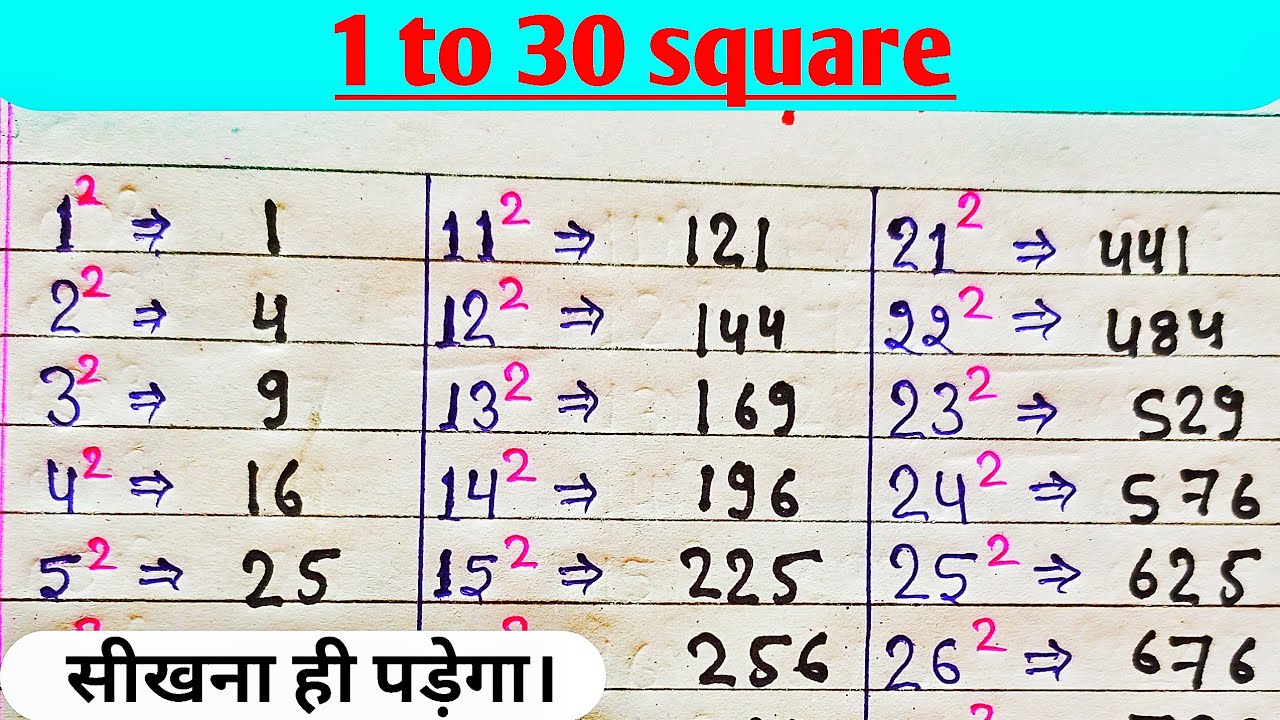 1 to 30 square
1² ⇒ 1 11² ⇒ 121 21² ⇒ 441
2² ⇒ 4 12² ⇒ 144 22² ⇒ 484
3² ⇒ 9 13² ⇒ 169 23² ⇒ 529
4² ⇒ 16 14² ⇒ 196 24² ⇒ 576
5² ⇒ 25 15² ⇒ 225 25² ⇒ 625
256 26² ⇒ 676
सीखना ही पड़ेगा।